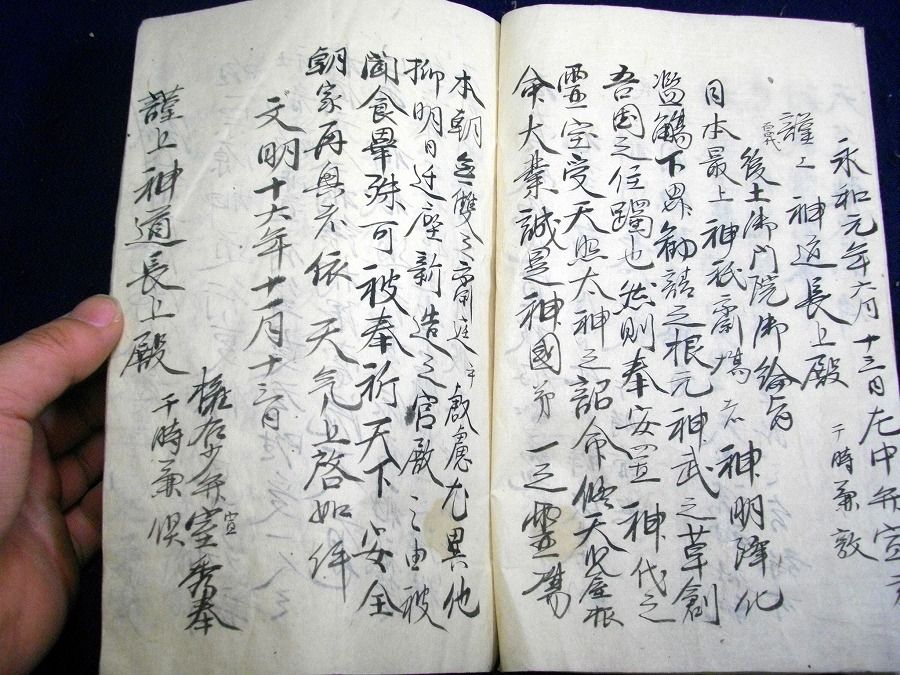 永和元年六月十三日左中弁宣方
謹上神道長上殿　于時兼敦
後土御門院御綸旨
日本最上神祇齋場者神明降化
濫觴下界勧請之根元神武之草創
吾国之佳躅也然則奉安置神代之
霊宝受天照太神之詔命傚天児屋根
命大業誠是神國第一之靈場
本朝無雙之齋庭叡慮尤異他
抑明日迁座新造之官殿之由被
聞食畢殊可被奉祈天下安全
朝家再興者依天气上啓如件
文明十六年十一月十三日
権右少弁宣秀奉
謹上神道長上殿　于時兼倶